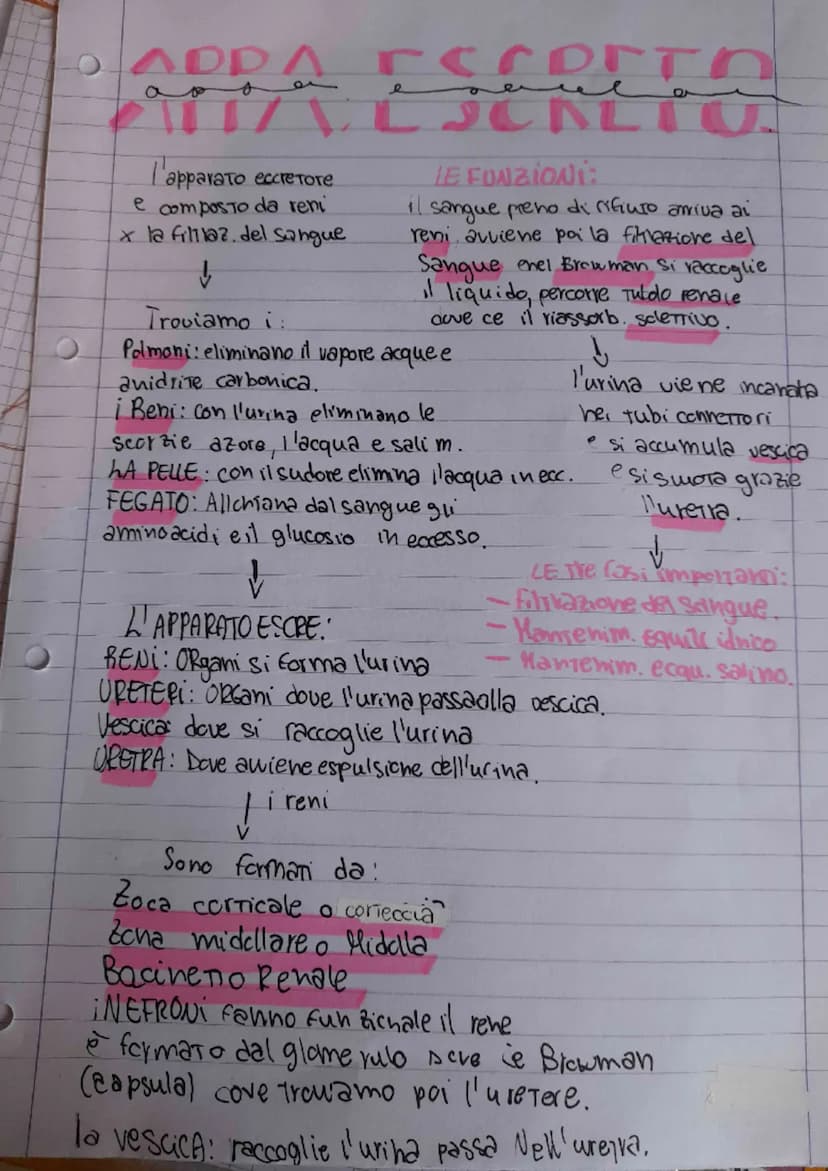 APPA. ESCRETO.
l'apparato eccretore
e composto da reni
x la filtraz. del sangue
Troviamo i:
Polmoni: eliminano il vapore acque e
anidrite carbonica.
i Reni: con l'urina eliminano le
scorzie azore, l'acqua e sali m.
LA PELLE: con il sudore elimina l'acqua in ecc.
FEGATO: Allchiana dal sangue gli
aminoacidi e il glucosio in eccesso.
LE FUNZIONI:
il sangue pieno di rifiuto arriva ai
reni, avviene poi la filtrazione del
Sangue e nel Browman si raccoglie
il liquido, percorre tubolo renale
dove ce il riassorb. selettivo.
l'urina viene incanata
nei tubi connettori
e si accumula vescica
e si svuota grazie
l'uretra.
LE tre cosi importanti:
- filtrazione del sangue.
- Mantenim. equili idrico
- Mantenim. ecqu. salino.
L'APPARATO ESCRE:
RENI: ORgani si forma l'urina
URETERI: ORGANI dove l'urina passa alla vescica.
Vescica: dove si raccoglie l'urina
URETRA: Dove avviene espulsione dell'urina.
i reni
Sono formati da:
Zoca corticale o corteccia
Zona midollare o Midolla
Bacinetto Renale
i NEFRONI fanno funzionale il rene
è formato dal glomerulo Browman
(capsula) dove troviamo poi l'uretere.
la vescica: raccoglie l'urina passa Nell'uretra.